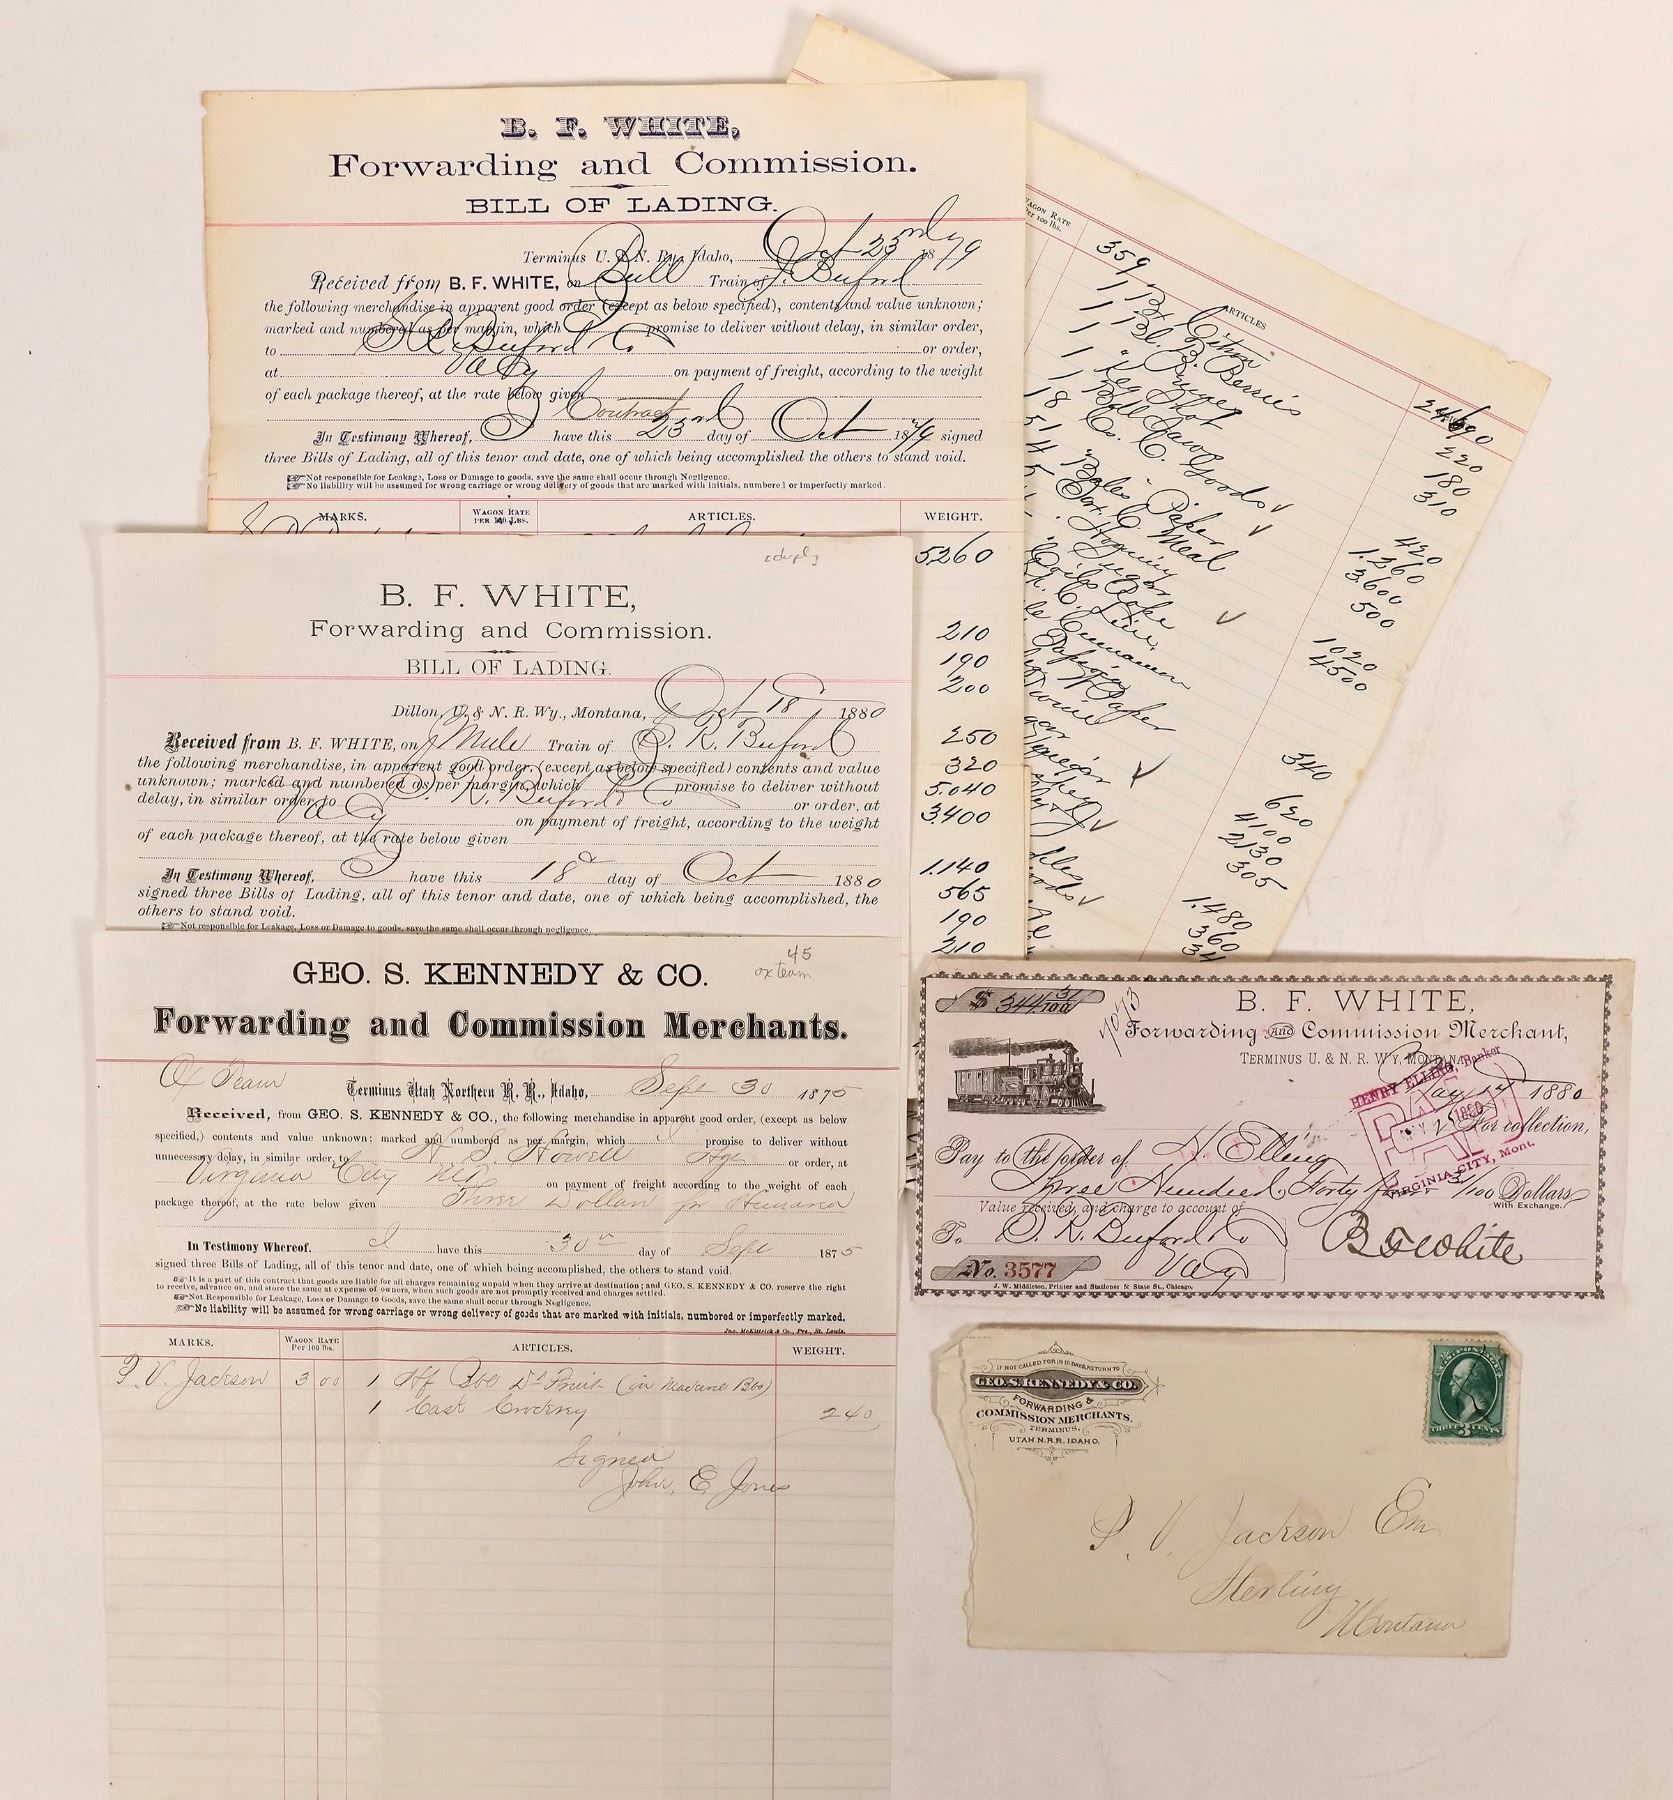 B. F. WHITE,
Forwarding and Commission.
BILL OF LADING.
Terminus U. & N. Ry. Idaho, Oct 23rd 1879
Received from B. F. WHITE, on Bull Train of Buford
the following merchandise in apparent good order (except as below specified), contents and value unknown;
marked and numbered as per margin, which promise to deliver without delay, in similar order,
to S. R. Buford & Co or order,
at Va Cy on payment of freight, according to the weight
of each package thereof, at the rate below given
Contract
In Testimony Whereof, I have this 23rd day of Oct 1879 signed
three Bills of Lading, all of this tenor and date, one of which being accomplished the others to stand void.
Not responsible for Leakage, Loss or Damage to goods, save the same shall occur through Negligence.
No liability will be assumed for wrong carriage or wrong delivery of goods that are marked with initials, numbered or imperfectly marked.
MARKS. WAGON RATE PER 100 LBS. ARTICLES. WEIGHT.
5260
210
190
200
250
320
5.040
3.400
1.140
565
190
210
WAGON RATE
Per 100 lbs.
ARTICLES
359
1 Citron
1 Bl. B. Berries
1 " Pruges
1 Keg Shot
1
18 Cs. C. Goods
51
4 Bales Paper
5 C. Meal
1 Hominy
" Sugar
Coils Rope
Cinnamon
Paper
24690
220
180
310
420
1.260
3.600
500
1020
4500
340
620
4100
2130
305
1.480
360
34
B. F. WHITE,
Forwarding and Commission.
BILL OF LADING.
Dillon, U. & N. R. Wy., Montana, Oct 18 1880
Received from B. F. WHITE, on Mule Train of S. R. Buford
the following merchandise, in apparent good order, (except as below specified) contents and value
unknown; marked and numbered as per margin, which promise to deliver without
delay, in similar order to S. R. Buford & Co or order, at
Va Cy on payment of freight, according to the weight
of each package thereof, at the rate below given
In Testimony Whereof, I have this 18th day of Oct 1880
signed three Bills of Lading, all of this tenor and date, one of which being accomplished, the
others to stand void.
Not responsible for Leakage, Loss or Damage to goods, save the same shall occur through negligence.
45
ox team
GEO. S. KENNEDY & CO.
Forwarding and Commission Merchants.
Ox Team Terminus Utah Northern R. R., Idaho, Sept 30 1875
Received, from GEO. S. KENNEDY & CO., the following merchandise in apparent good order, (except as below
specified,) contents and value unknown; marked and numbered as per margin, which I promise to deliver without
unnecessary delay, in similar order, to H S. Howell Agt or order, at
Virginia City on payment of freight according to the weight of each
package thereof, at the rate below given Three Dollars pr Hundred
In Testimony Whereof, I have this 30th day of Sept 1875
signed three Bills of Lading, all of this tenor and date, one of which being accomplished, the others to stand void.
It is a part of this contract that goods are liable for all charges remaining unpaid when they arrive at destination; and GEO. S. KENNEDY & CO. reserve the right
to receive, advance on, and store the same at expense of owners, when such goods are not promptly received and charges settled.
Not Responsible for Leakage, Loss or Damage to Goods, save the same shall occur through Negligence.
No liability will be assumed for wrong carriage or wrong delivery of goods that are marked with initials, numbered or imperfectly marked.
Jno. McKittrick & Co., Prs., St. Louis.
MARKS. WAGON RATE Per 100 lbs. ARTICLES. WEIGHT.
P. V. Jackson 3 00 1 Hf Bbl Dd Fruit (in Mackerel Bbl)
1 Cask Crockery 240
Signed
John, E, Jones
$ 344 31/100
7073
B. F. WHITE,
Forwarding and Commission Merchant,
TERMINUS U. & N. R. W'Y, MONTANA,
May 14 1880
For collection,
Pay to the order of H. Elling
Three Hundred, Forty four 31/100 Dollars
With Exchange.
Value received, and charge to account of
To S. R. Buford & Co
Va Cy
B F White
No. 3577
J. W. Middleton, Printer and Stationer 55 State St., Chicago.
HENRY ELLING, Banker
PAID
1880
VIRGINIA CITY, Mont.
IF NOT CALLED FOR IN 10 DAYS, RETURN TO
GEO. S. KENNEDY & CO.
FORWARDING &
COMMISSION MERCHANTS,
TERMINUS,
UTAH N. R. R. IDAHO.
U.S. POSTAGE
THREE 3 CENTS
P. V. Jackson Esq
Sterling
Montana